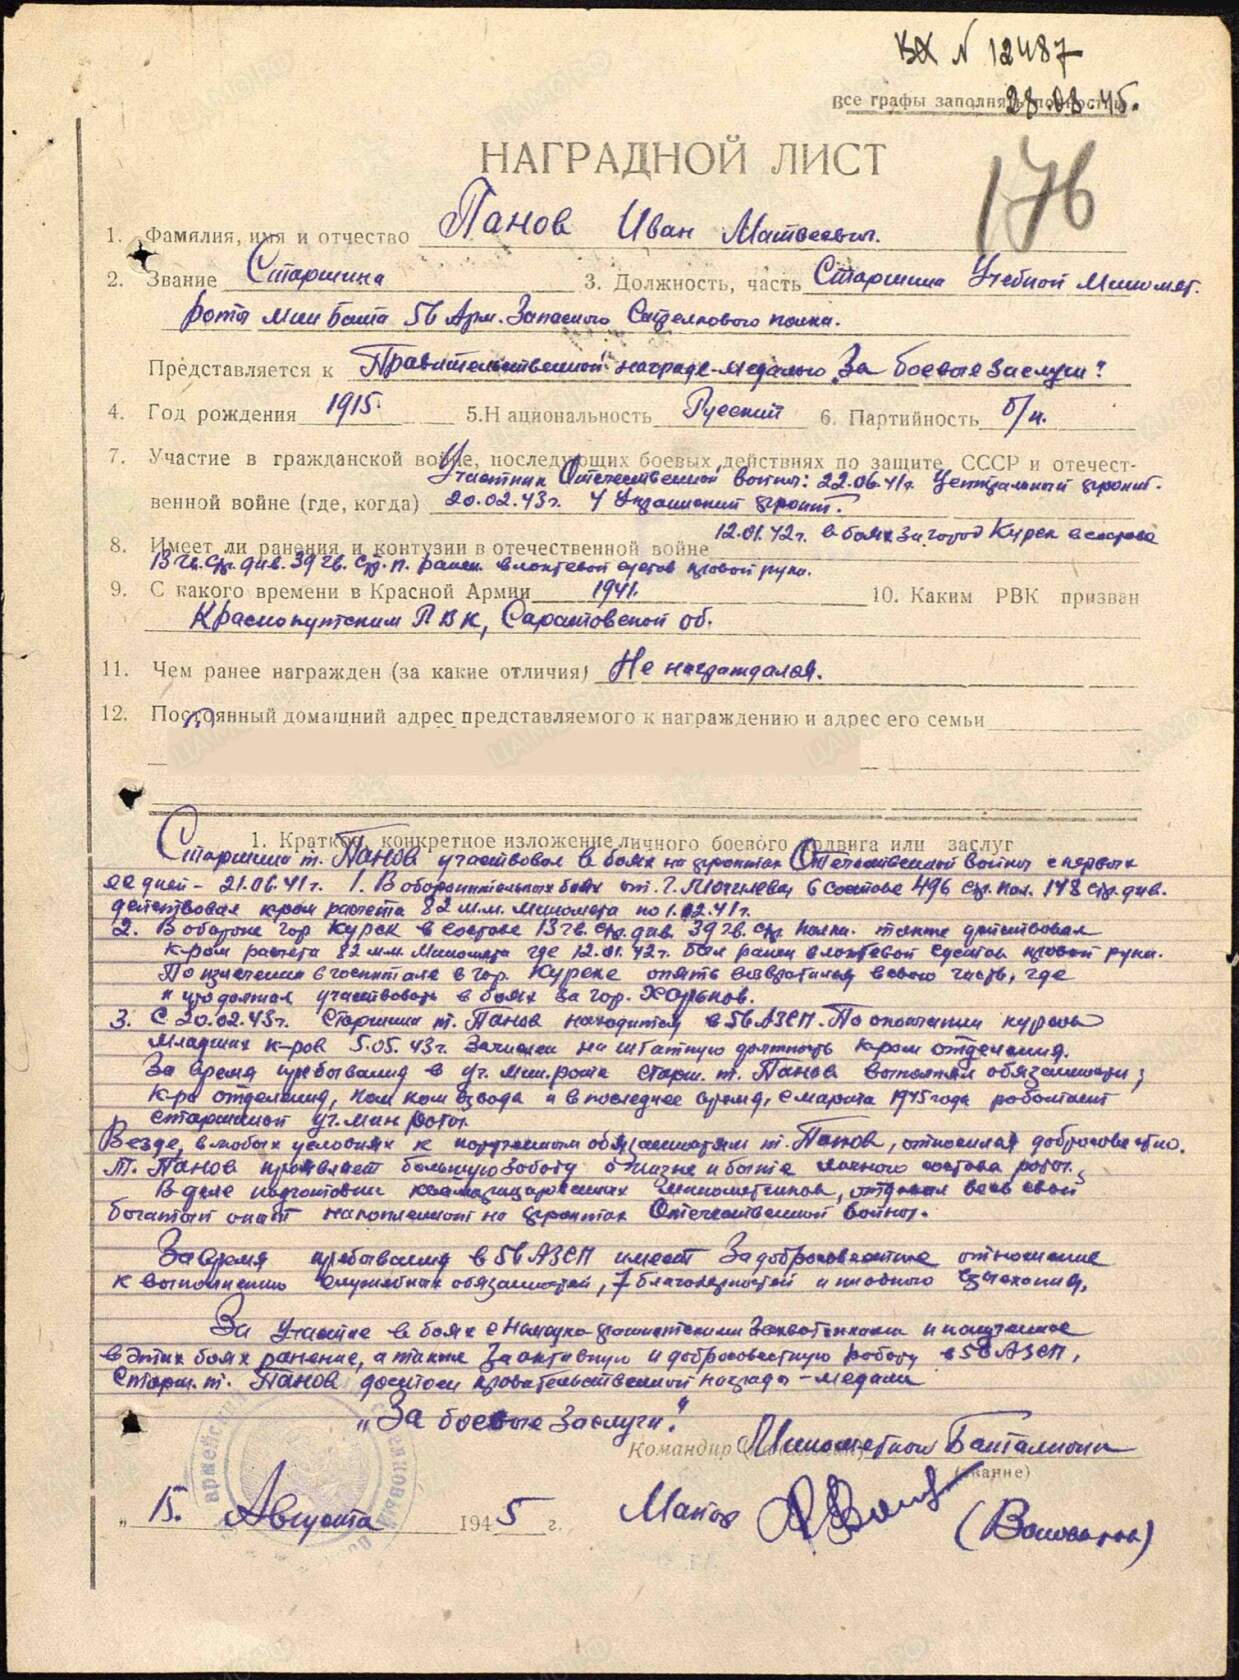 вх N 12487
Все графы заполнять полностью
28.08.45.
НАГРАДНОЙ ЛИСТ
176
1. Фамилия, имя и отчество Панов Иван Матвеевич.
2. Звание Старшина 3. Должность, часть Старшина Учебной Миномет.
роты мин бата 56 Арм. Запасного Стрелкового полка.
Представляется к Правительственной награде-медалью „За боевые заслуги"
4. Год рождения 1915. 5. Национальность Русский 6. Партийность б/п.
7. Участие в гражданской войне, последующих боевых действиях по защите СССР и отечест-
Участник Отечественной войны: 22.06.41г. Центральный фронт.
венной войне (где, когда) 20.02.43г. Украинский фронт.
12.01.42г. в боях за город Курск в составе
8. Имеет ли ранения и контузии в отечественной войне
13 гв. стр. див. 39 гв. стр. п. ранен в локтевой сустав правой руки.
9. С какого времени в Красной Армии 1941. 10. Каким РВК призван
Краснокутским РВК, Саратовской об.
11. Чем ранее награжден (за какие отличия) Не награждался.
12. Постоянный домашний адрес представляемого к награждению и адрес его семьи
1. Краткое, конкретное изложение личного боевого подвига или заслуг
Старшина т. Панов участвовал в боях на фронтах Отечественной войны с первых
ее дней - 21.06.41г. 1. В оборонительных боях от г. Могилева, в составе 496 стр. пол. 148 стр. див.
действовал к-ром расчета 82 м.м. миномета по 1.02.41г.
2. В обороне гор Курск в составе 13 гв. стр. див. 39 гв. стр. полка. также действовал
к-ром расчета 82 мм. Миномета где 12.01.42г. был ранен в локтевой сустав правой руки.
По излечении в госпитале в гор. Курске опять возвратился в свою часть, где
продолжал участвовать в боях за гор. Харьков.
3. С 20.02.43г. старшина т. Панов находится в 56 АЗСП. По окончании курсов
младших к-ров 5.05.43г. зачислен на штатную должность к-ром отделения.
За время пребывания в уч. мин. роте старш. т. Панов выполнял обязанности;
к-ра отделения, пом ком взвода и в последнее время, с марта 1945 года работает
старшиной уч. мин роты.
Везде, в любых условиях к порученным обязанностям т. Панов, относился добросовестно.
Т. Панов проявляет большую заботу о жизни и быте личного состава роты.
В деле подготовки квалифицированных минометчиков, отдавал весь свой
богатый опыт накопленный на фронтах Отечественной войны.
За время пребывания в 56 АЗСП имеет за добросовестное отношение
к выполнению служебных обязанностей, 7 благодарностей и ни одного взыскания.
За участие в боях с Немецко-фашистскими захватчиками и полученное
в этих боях ранение, а также за активную и добросовестную работу в 56 АЗСП,
старш. т. Панов достоин правительственной награды - медали
„За боевые заслуги."
Командир Минометного Батальона
(звание)
„15. Августа 1945 г. Майор (Волов